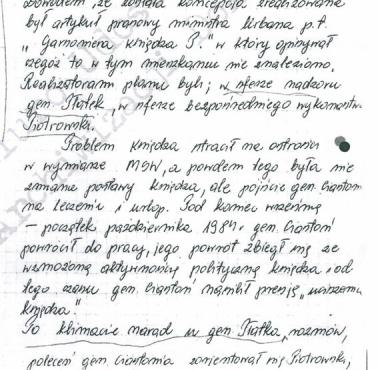 Dowodem, że została koncepcja zrealizowana
był artykuł prasowy ministra Urbana p.t.
"Garsoniera księdza P." w który opisywał
czegóż to w tym mieszkaniu nie znaleziono.
Realizatorami planu byli; w sferze nadzoru
gen. Płatek, w sferze bezpośredniego wykonawstwa
Piotrowski.
Problem księdza stracił na ostrości
w wymiarze MSW, a powodem tego była nie
zmiana postawy księdza, ale pójście gen. Ciastonia
na leczenie i urlop. Pod koniec września
- początek października 1984 r. gen. Ciastoń
powrócił do pracy, jego powrót zbiegł się ze
wzmożoną aktywnością polityczną księdza i od
tego czasu gen. Ciastoń nasilił presję "uciszenia
księdza".
Po klimacie narad u gen. Płatka, rozmów,
poleceń gen. Ciastonia zorientował się Piotrowski,